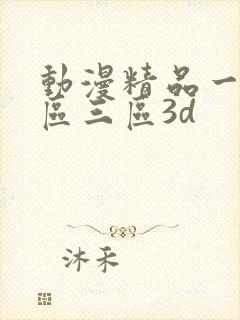 動漫精品一
區三區3d
沐禾